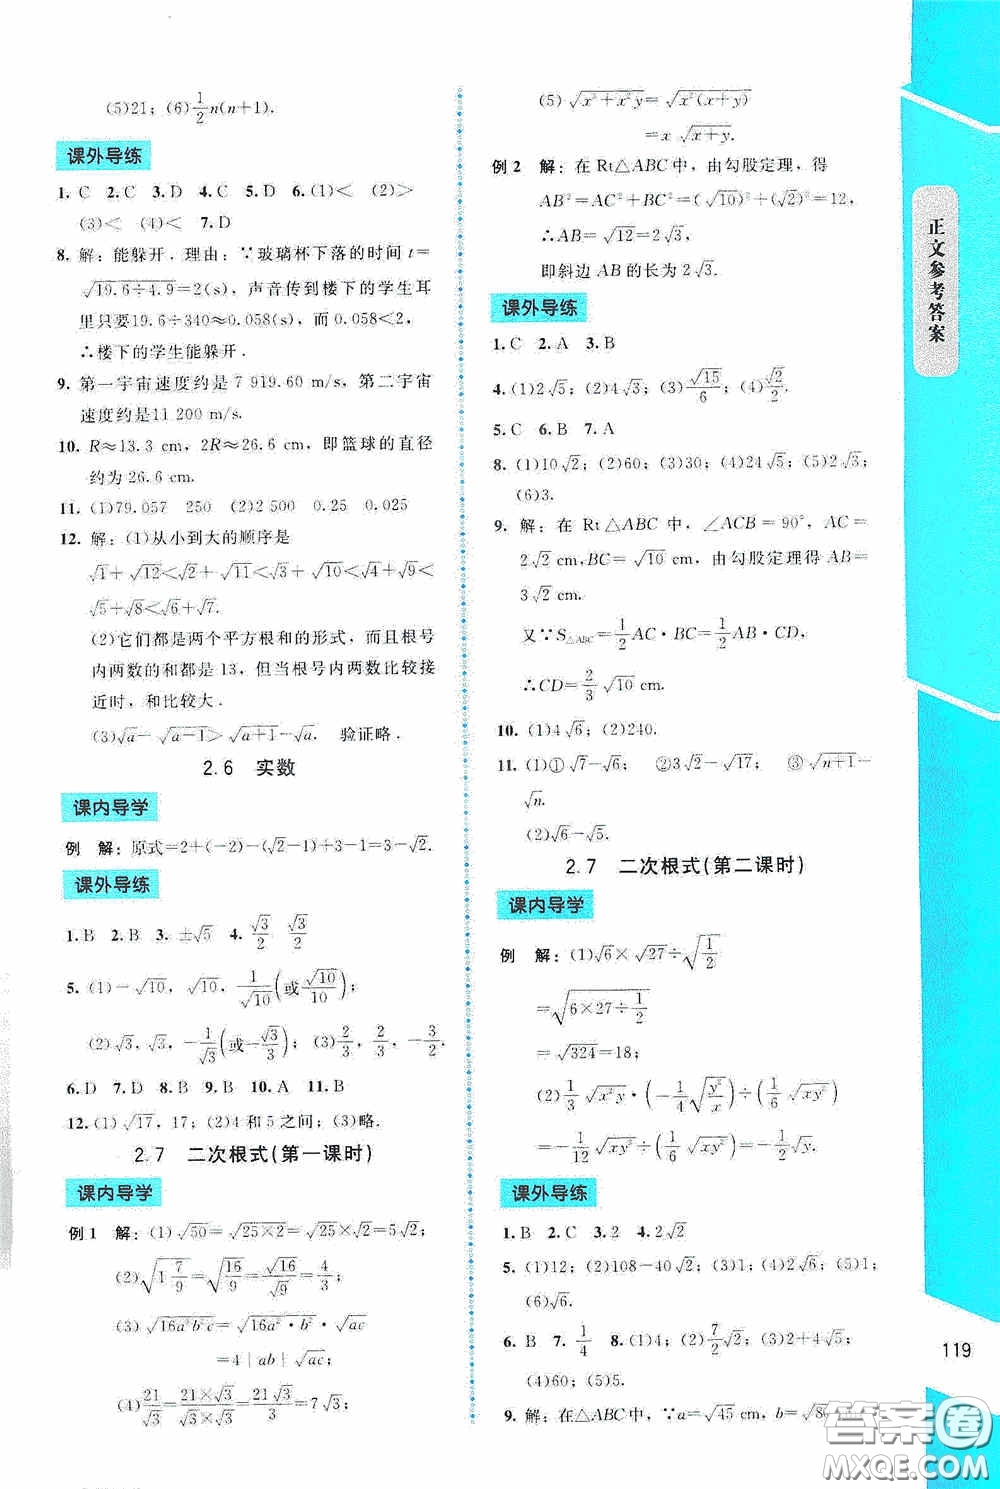 (5)21; (6)1/2n(n+1).
课外导练
1. C 2. C 3. D 4. C 5. D 6. (1)< (2)>
(3)< (4)< 7. D
8. 解:能躲开.理由:∵玻璃杯下落的时间 t=
√(19.6÷4.9)=2(s),声音传到楼下的学生耳
里只要19.6÷340≈0.058(s),而 0.058<2,
∴楼下的学生能躲开.
9. 第一宇宙速度约是 7 919.60 m/s,第二宇宙
速度约是11 200 m/s.
10. R≈13.3 cm, 2R≈26.6 cm,即篮球的直径
约为 26.6 cm.
11. (1)79.057 250 (2)2 500 0.25 0.025
12. 解:(1)从小到大的顺序是
√1+√12<√2+√11<√3+√10<√4+√9<
√5+√8<√6+√7.
(2)它们都是两个平方根和的形式,而且根号
内两数的和都是 13,但当根号内两数比较接
近时,和比较大.
(3)√a-√(a-1)>√(a+1)-√a. 验证略.
2.6 实数
课内导学
例 解:原式=2+(-2)-(√2-1)+3-1=3-√2.
课外导练
1. B 2. B 3. ±√5 4. √3/2 √3/2
5. (1)-√10, √10, 1/√10(或√10/10);
(2)√3,√3,-1/√3(或-√3/3); (3)2/3, 2/3, -3/2.
6. D 7. D 8. B 9. B 10. A 11. B
12. (1)√17, 17; (2)4 和 5 之间; (3)略.
2.7 二次根式(第一课时)
课内导学
例 1 解:(1)√50=√(25×2)=√25×√2=5√2;
(2)√(1 7/9)=√(16/9)=√16/√9=4/3;
(3)√(16a²b²c)=√(16a²·b²)·√ac
=4|ab|√ac;
(4)21/√3=21×√3/√3×√3=21√3/3=7√3;
(5)√(x³+x²y)=√(x²(x+y))
=x√(x+y).
例 2 解:在 Rt△ABC 中,由勾股定理,得
AB²=AC²+BC²=(√10)²+(√2)²=12,
∴AB=√12=2√3.
即斜边 AB 的长为 2√3.
课外导练
1. C 2. A 3. B
4. (1)2√5; (2)4√3; (3)√15/6; (4)√2/2.
5. C 6. B 7. A
8. (1)10√2; (2)60; (3)30; (4)24√5; (5)2√3;
(6)3.
9. 解:在 Rt△ABC 中,∠ACB=90°, AC=
2√2 cm,BC=√10 cm,由勾股定理得 AB=
3√2 cm.
又∵S△ABC=1/2AC·BC=1/2AB·CD,
∴CD=2/3√10 cm.
10. (1)4√6; (2)240.
11. (1)①√7-√6; ②√3-√2 ③√(n+1)-
√n.
(2)√6-√5.
2.7 二次根式(第二课时)
课内导学
例 解:(1)√6×√27÷√(1/2)
=√(6×27÷1/2)
=√324=18;
(2)1/3√(x²y)·(-1/4√(y²/x))·(1/6√(xy²))
=-1/12√(xy³)·1/6√(xy²)
课外导练
1. B 2. C 3. 2 4. 2√2
5. (1)12; (2)108-40√2; (3)1; (4)2√6; (5)1;
(6)√6.
6. B 7. 1/4 8. (1)4; (2)7/2√2; (3)2+4√5;
(4)60; (5)5.
9. 解:在△ABC 中,∵a=√45 cm, b=√80
正文参考答案
119
答案圈
MXQE.COM